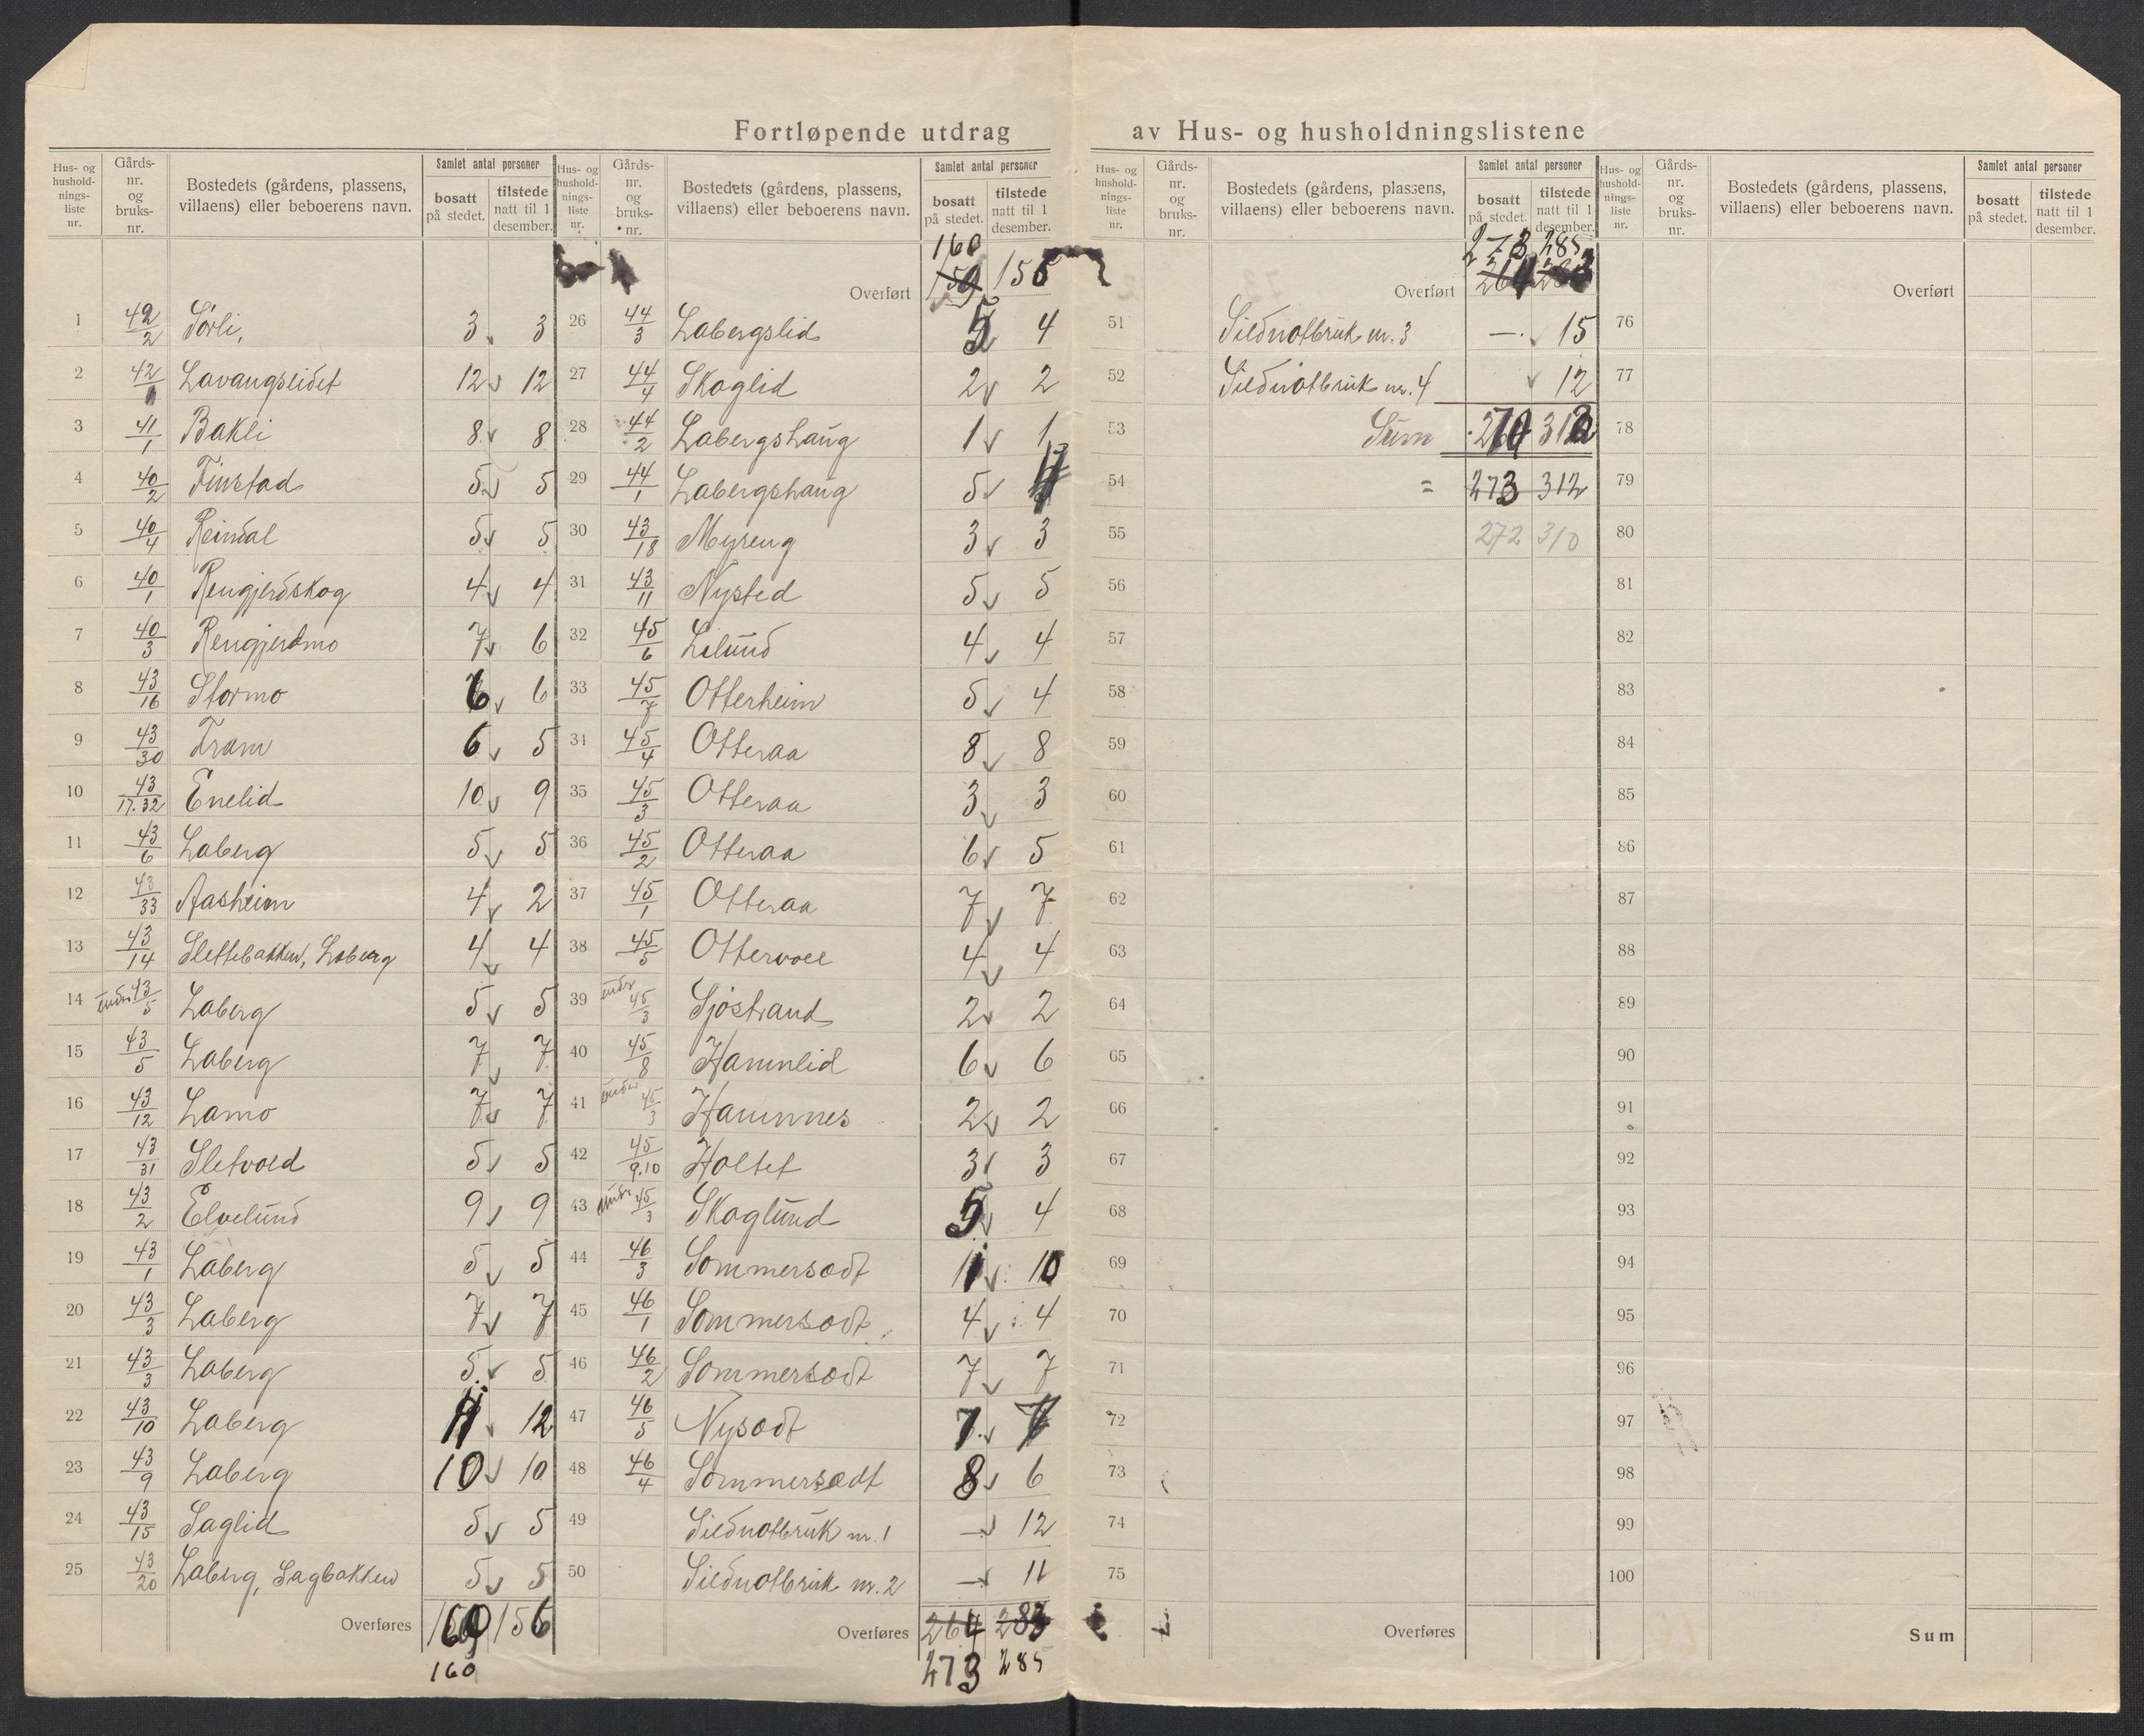 Fortløpende utdrag av Hus- og husholdningslistene
Hus- og hushold-nings-liste nr. Gårds-nr. og bruks-nr. Bostedets (gårdens, plassens, villaens) eller beboerens navn. Samlet antal personer bosatt på stedet. tilstede natt til 1 desember.
1 42/2 Sørli, 3 3
2 42/1 Lavangseidet 12 12
3 41/1 Bakli 8 8
4 40/2 Finstad 5 5
5 40/4 Reindal 5 5
6 40/1 Rengjerdskog 4 4
7 40/3 Rengjerdmo 7 6
8 43/16 Stormo 6 6
9 43/30 Fram 6 5
10 43/17.32 Enelid 10 9
11 43/6 Laberg 5 5
12 43/33 Aasheim 4 2
13 43/14 Slettebakken, Laberg 4 4
14 under 43/5 Laberg 5 5
15 43/5 Laberg 7 7
16 43/12 Lamo 7 7
17 43/31 Sletvold 5 5
18 43/2 Elvelund 9 9
19 43/1 Laberg 5 5
20 43/3 Laberg 7 7
21 43/3 Laberg 5 5
22 43/10 Laberg 11 12
23 43/9 Laberg 10 10
24 43/15 Saglid 5 5
25 43/20 Laberg, Sagbakken 5 5
Overføres 160 156
160
Hus- og hushold-nings-liste nr. Gårds-nr. og bruks-nr. Bostedets (gårdens, plassens, villaens) eller beboerens navn. Samlet antal personer bosatt på stedet. tilstede natt til 1 desember.
160
Overført 159 156
26 44/3 Labergslid 5 4
27 44/4 Skoglid 2 2
28 44/2 Labergshaug 1 1
29 44/1 Labergshaug 5
30 43/18 Myreng 3 3
31 43/11 Nysted 5 5
32 45/6 Lilund 4 4
33 45/7 Otterheim 5 4
34 45/4 Otteraa 8 8
35 45/3 Otteraa 3 3
36 45/2 Otteraa 6 5
37 45/1 Otteraa 7 7
38 45/5 Ottervoll 4 4
39 under 45/3 Sjøstrand 2 2
40 45/8 Hamnlid 6 6
41 under 45/3 Hamnnes 2 2
42 45/9.10 Holtet 3 3
43 under 45/3 Skoglund 5 4
44 46/3 Sommersædt 11 10
45 46/1 Sommersædt 4 4
46 46/2 Sommersædt 7 7
47 46/5 Nysædt 7 7
48 46/4 Sommersædt 8 6
49 Sildnotbruk nr. 1 — 12
50 Sildnotbruk nr. 2 — 11
Overføres 264 283
273 285
Hus- og hushold-nings-liste nr. Gårds-nr. og bruks-nr. Bostedets (gårdens, plassens, villaens) eller beboerens navn. Samlet antal personer bosatt på stedet. tilstede natt til 1 desember.
273 285
Overført 264 283
51 Sildnotbruk nr. 3 — 15
52 Sildnotbruk nr. 4 12
53 Sum 312
54 = 273 312
55 272 310
56
57
58
59
60
61
62
63
64
65
66
67
68
69
70
71
72
73
74
75
Overføres
Hus- og hushold-nings-liste nr. Gårds-nr. og bruks-nr. Bostedets (gårdens, plassens, villaens) eller beboerens navn. Samlet antal personer bosatt på stedet. tilstede natt til 1 desember.
Overført
76
77
78
79
80
81
82
83
84
85
86
87
88
89
90
91
92
93
94
95
96
97
98
99
100
Sum